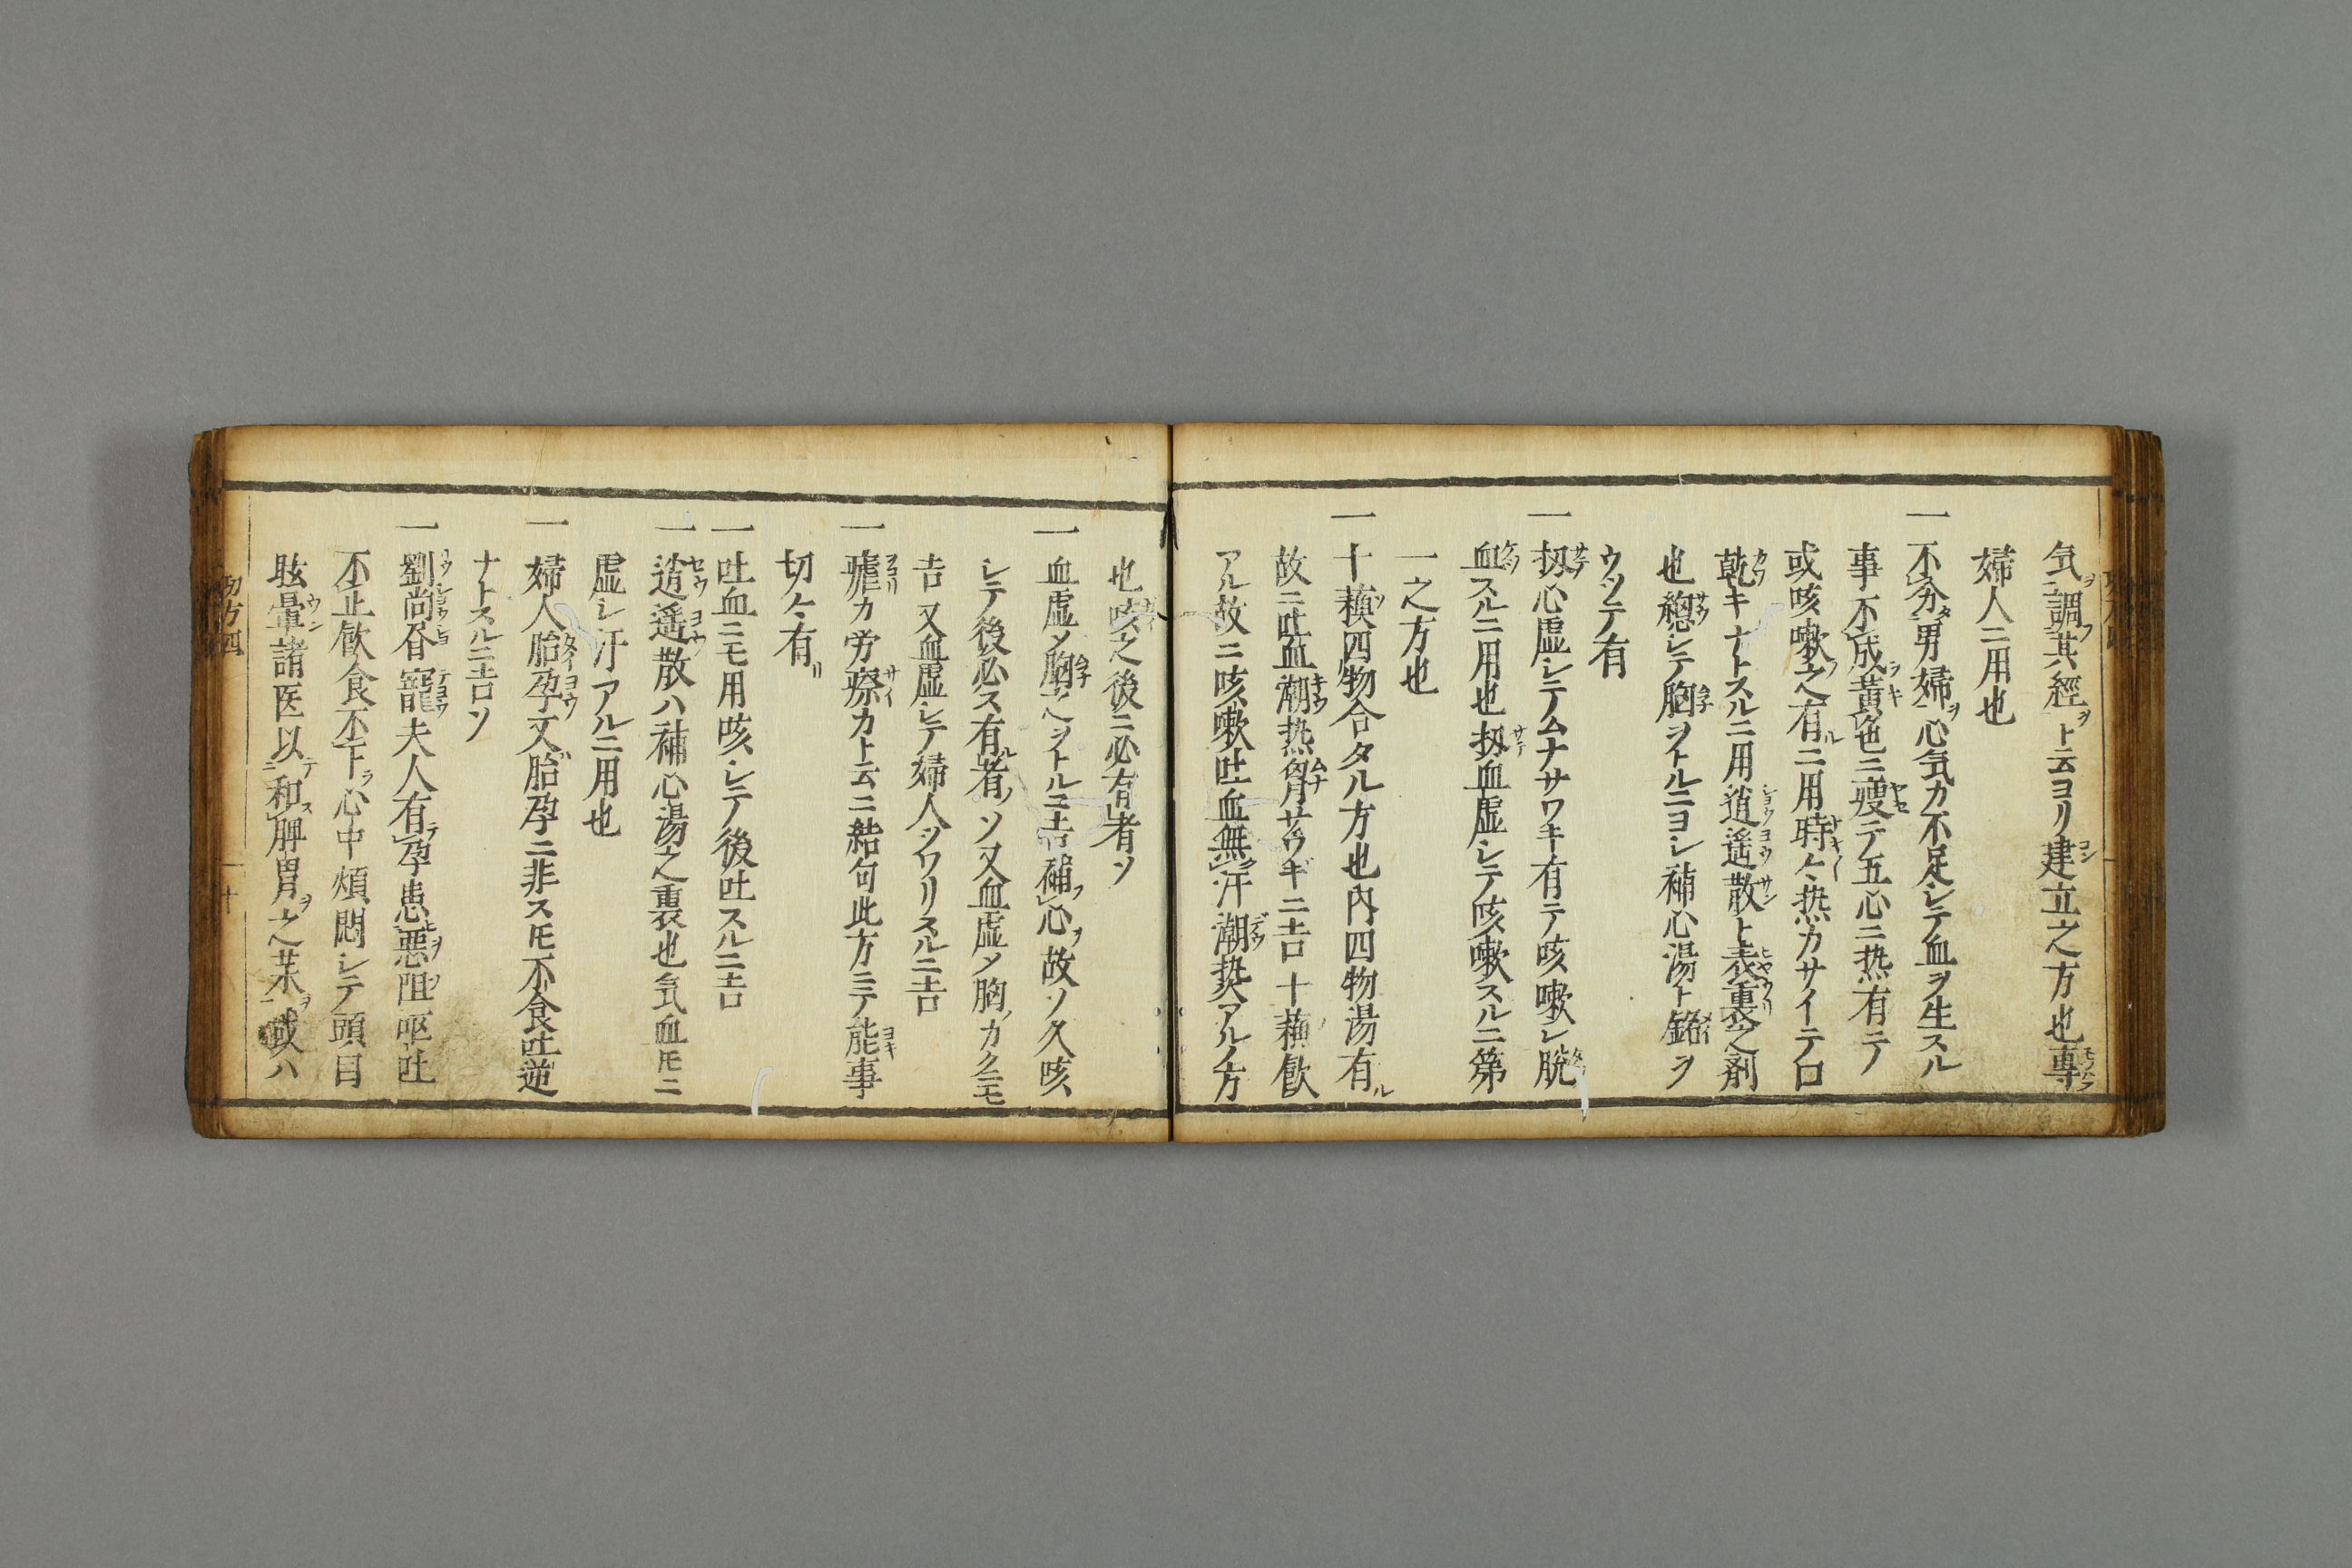 気調其經ト云ヨリ建立之方也專
婦人ニ用也
一不分男婦心気カ不足シテ血ヲ生スル
事不成黄色ニ瘦テ五心ニ热有テ
或咳嗽之有ニ用時々热カサイテ口
乾キナトスルニ用逍遥散ト表裏之剤
也總シテ胸ヲトルニヨシ補心湯ト銘ヲ
ウツテ有
一扨心虚シテムナサワキ有テ咳嗽シ脱
血スルニ用也扨血虚シテ咳嗽スルニ第
一之方也
一十藇四物合タル方也内四物湯有
故ニ吐血潮热胷サウギニ吉十藇飲
アル故ニ咳嗽吐血無汗潮熱アルノ方
也咳之後ニ必有者ソ
一血虚メ胸ヘヲトルニ吉補心故ソ久咳
シテ後必ス有者ソ又血虚メ胸ノカクニモ
吉又血虚シテ婦人ツワリスルニ吉
一瘧カ労瘵カト云ニ結句此方ニテ能事
切々有
一吐血ニモ用咳シテ後吐スルニ吉
一逍遥散ハ補心湯之裏也気血トモニ
虚シ汗アルニ用也
一婦人胎孕又胎孕ニ非スモ不食吐逆
ナトスルニ吉ソ
一劉尚昏寵夫人有孕患惡阻嘔吐
不止飲食不下心中煩悶シテ頭目
眩暈諸医以和脾胃之茱或ハ
切方四
十